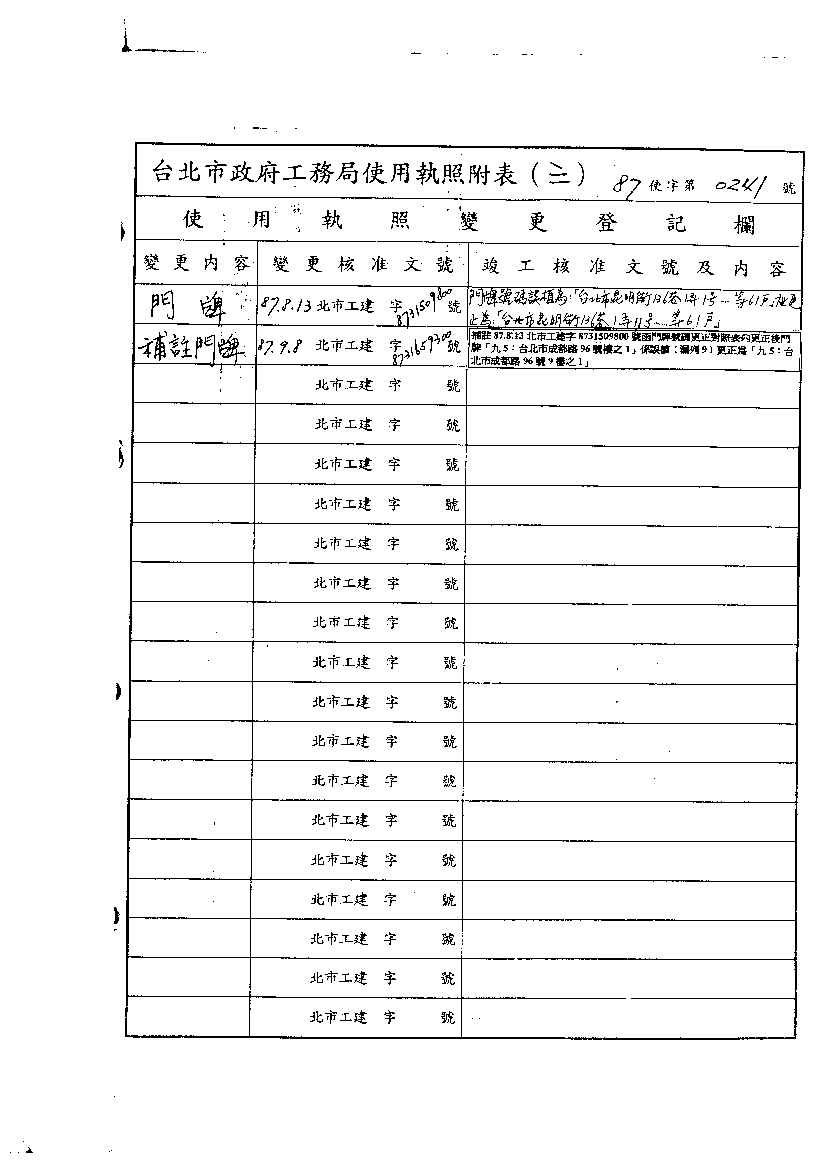 台北市政府工務局使用執照附表（三） 87 使字第 0241 號
使用執照變更登記欄
變更內容 變更核准文號 竣工核准文號及內容
門牌 87.8.13 北市工建 字 8731509800 號 門牌號碼誤植為「台北市昆明街136巷1弄1號...等61戶」
正為「台北市昆明街136巷1弄11號...等61戶」
補註門牌 87.9.8 北市工建 字 8731659300 號 補註 87.8.13 北市工建字 8731509800 號函門牌號碼更正對照表內更正後門
牌「九5：台北市成都路 96 號樓之 1」係誤植（漏列 9）更正為「九5：台
北市成都路 96 號 9 樓之 1」
北市工建 字 號
北市工建 字 號
北市工建 字 號
北市工建 字 號
北市工建 字 號
北市工建 字 號
北市工建 字 號
北市工建 字 號
北市工建 字 號
北市工建 字 號
北市工建 字 號
北市工建 字 號
北市工建 字 號
北市工建 字 號
北市工建 字 號
北市工建 字 號
北市工建 字 號